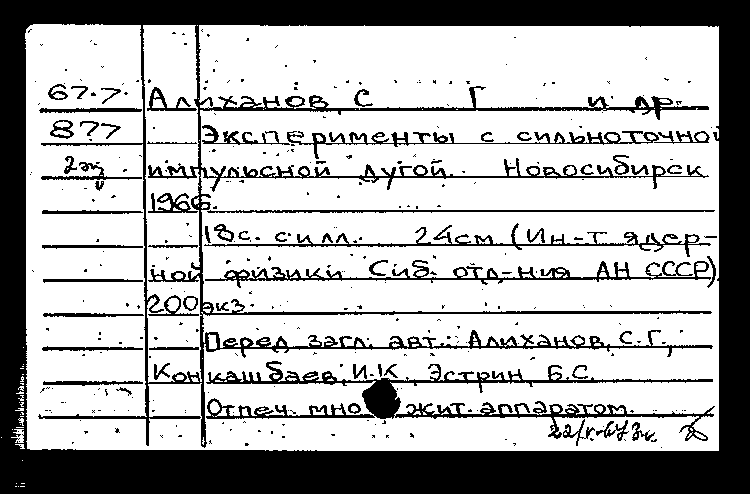 67.7. Алиханов, С Г и др.
877 Эксперименты с сильноточной
2 экз импульсной дугой. Новосибирск
1966.
18с. с илл. 24см (Ин-т ядер-
ной физики Сиб. отд-ния АН СССР)
200 экз.
Перед загл. авт.: Алиханов, С.Г.,
Конкашбаев, И.К., Эстрин, Б.С.
Отпеч. мно жит. аппаратом.